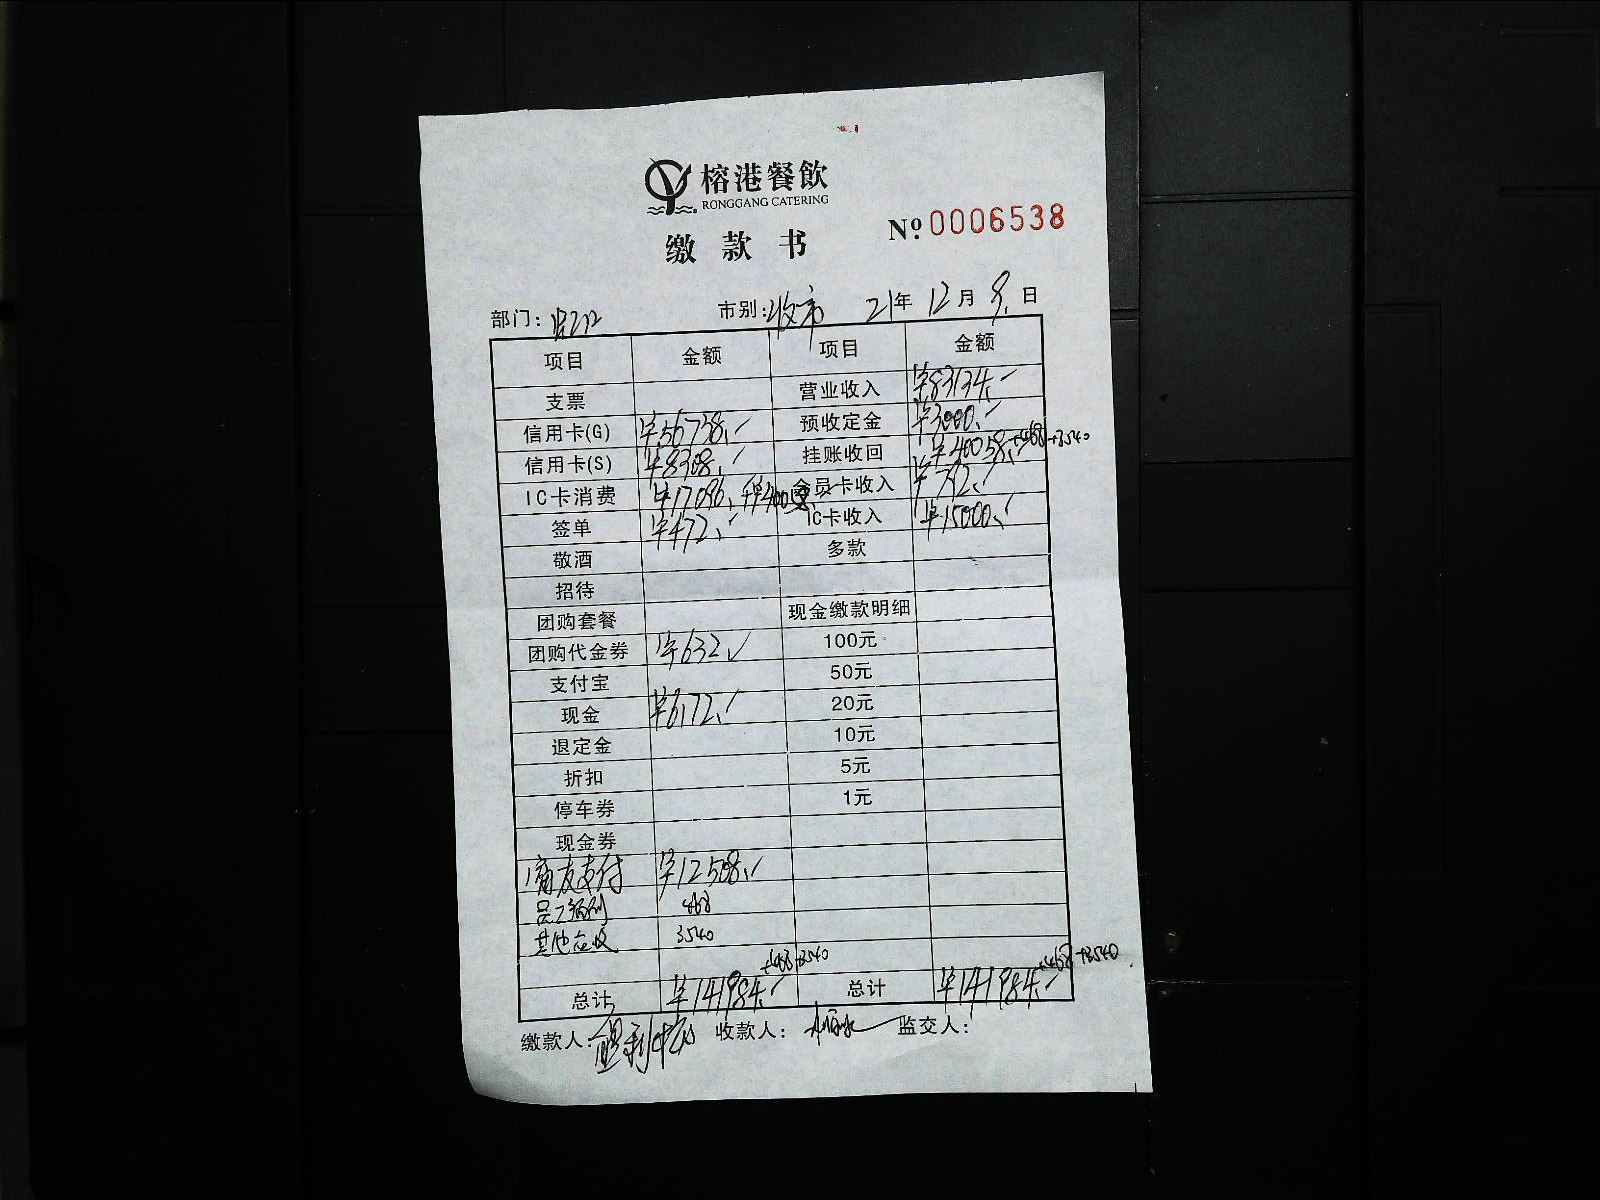 榕港餐飲
RONGGANG CATERING
缴款书
Nº 0006538
部门: 市别: 收市 21年 12月 9日
项目 金额 项目 金额
支票 营业收入 ¥83134.
信用卡(G) ¥56738. 预收定金 ¥3000.
信用卡(S) ¥8308. 挂账收回 ¥40058. +468 +3540
IC卡消费 ¥17096. 会员卡收入 ¥792.
签单 ¥472. IC卡收入 ¥15000.
敬酒 多款
招待
团购套餐 现金缴款明细
团购代金券 ¥632 100元
支付宝 50元
现金 ¥6172. 20元
退定金 10元
折扣 5元
停车券 1元
现金券
商友支付 ¥12508.
468
其他应收 3540
+468 +3540 +468 +3540
总计 ¥141984. 总计 ¥141984.
缴款人: 收款人: 监交人: